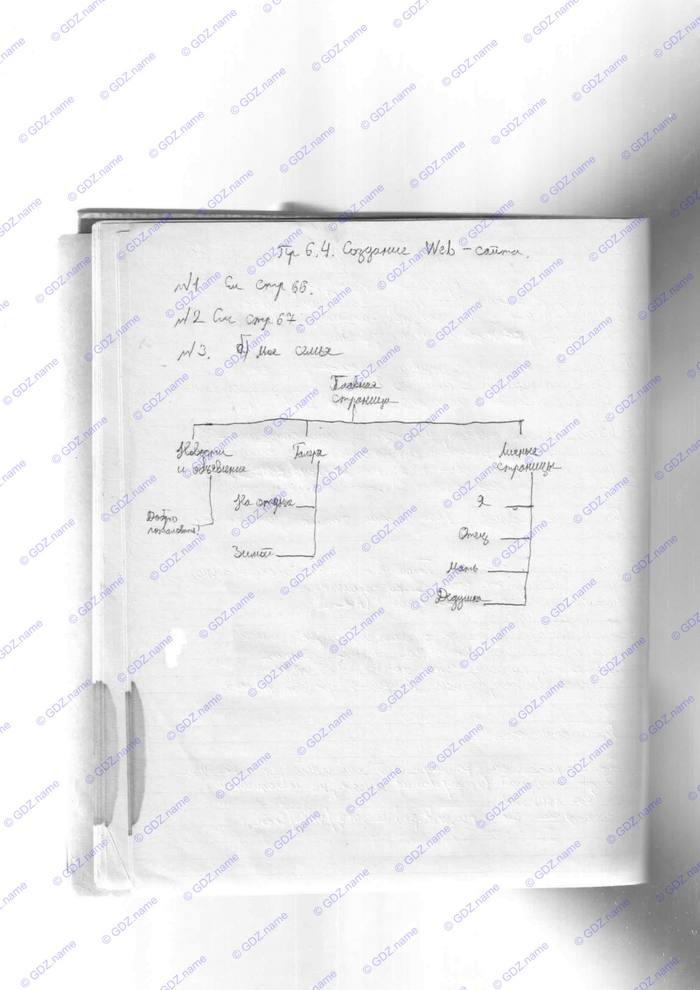 Пр 6.4. Создание Web-сайта.
№1 См стр 66.
№2 См стр 67
№3. б) Моя семья
Главная
страница
Новости
и объявления
Галере
Личные
страницы
Добро
пожаловать!
На отдыхе
Зимой
Я
Отец
Мать
Дедушка
© GDZ.name